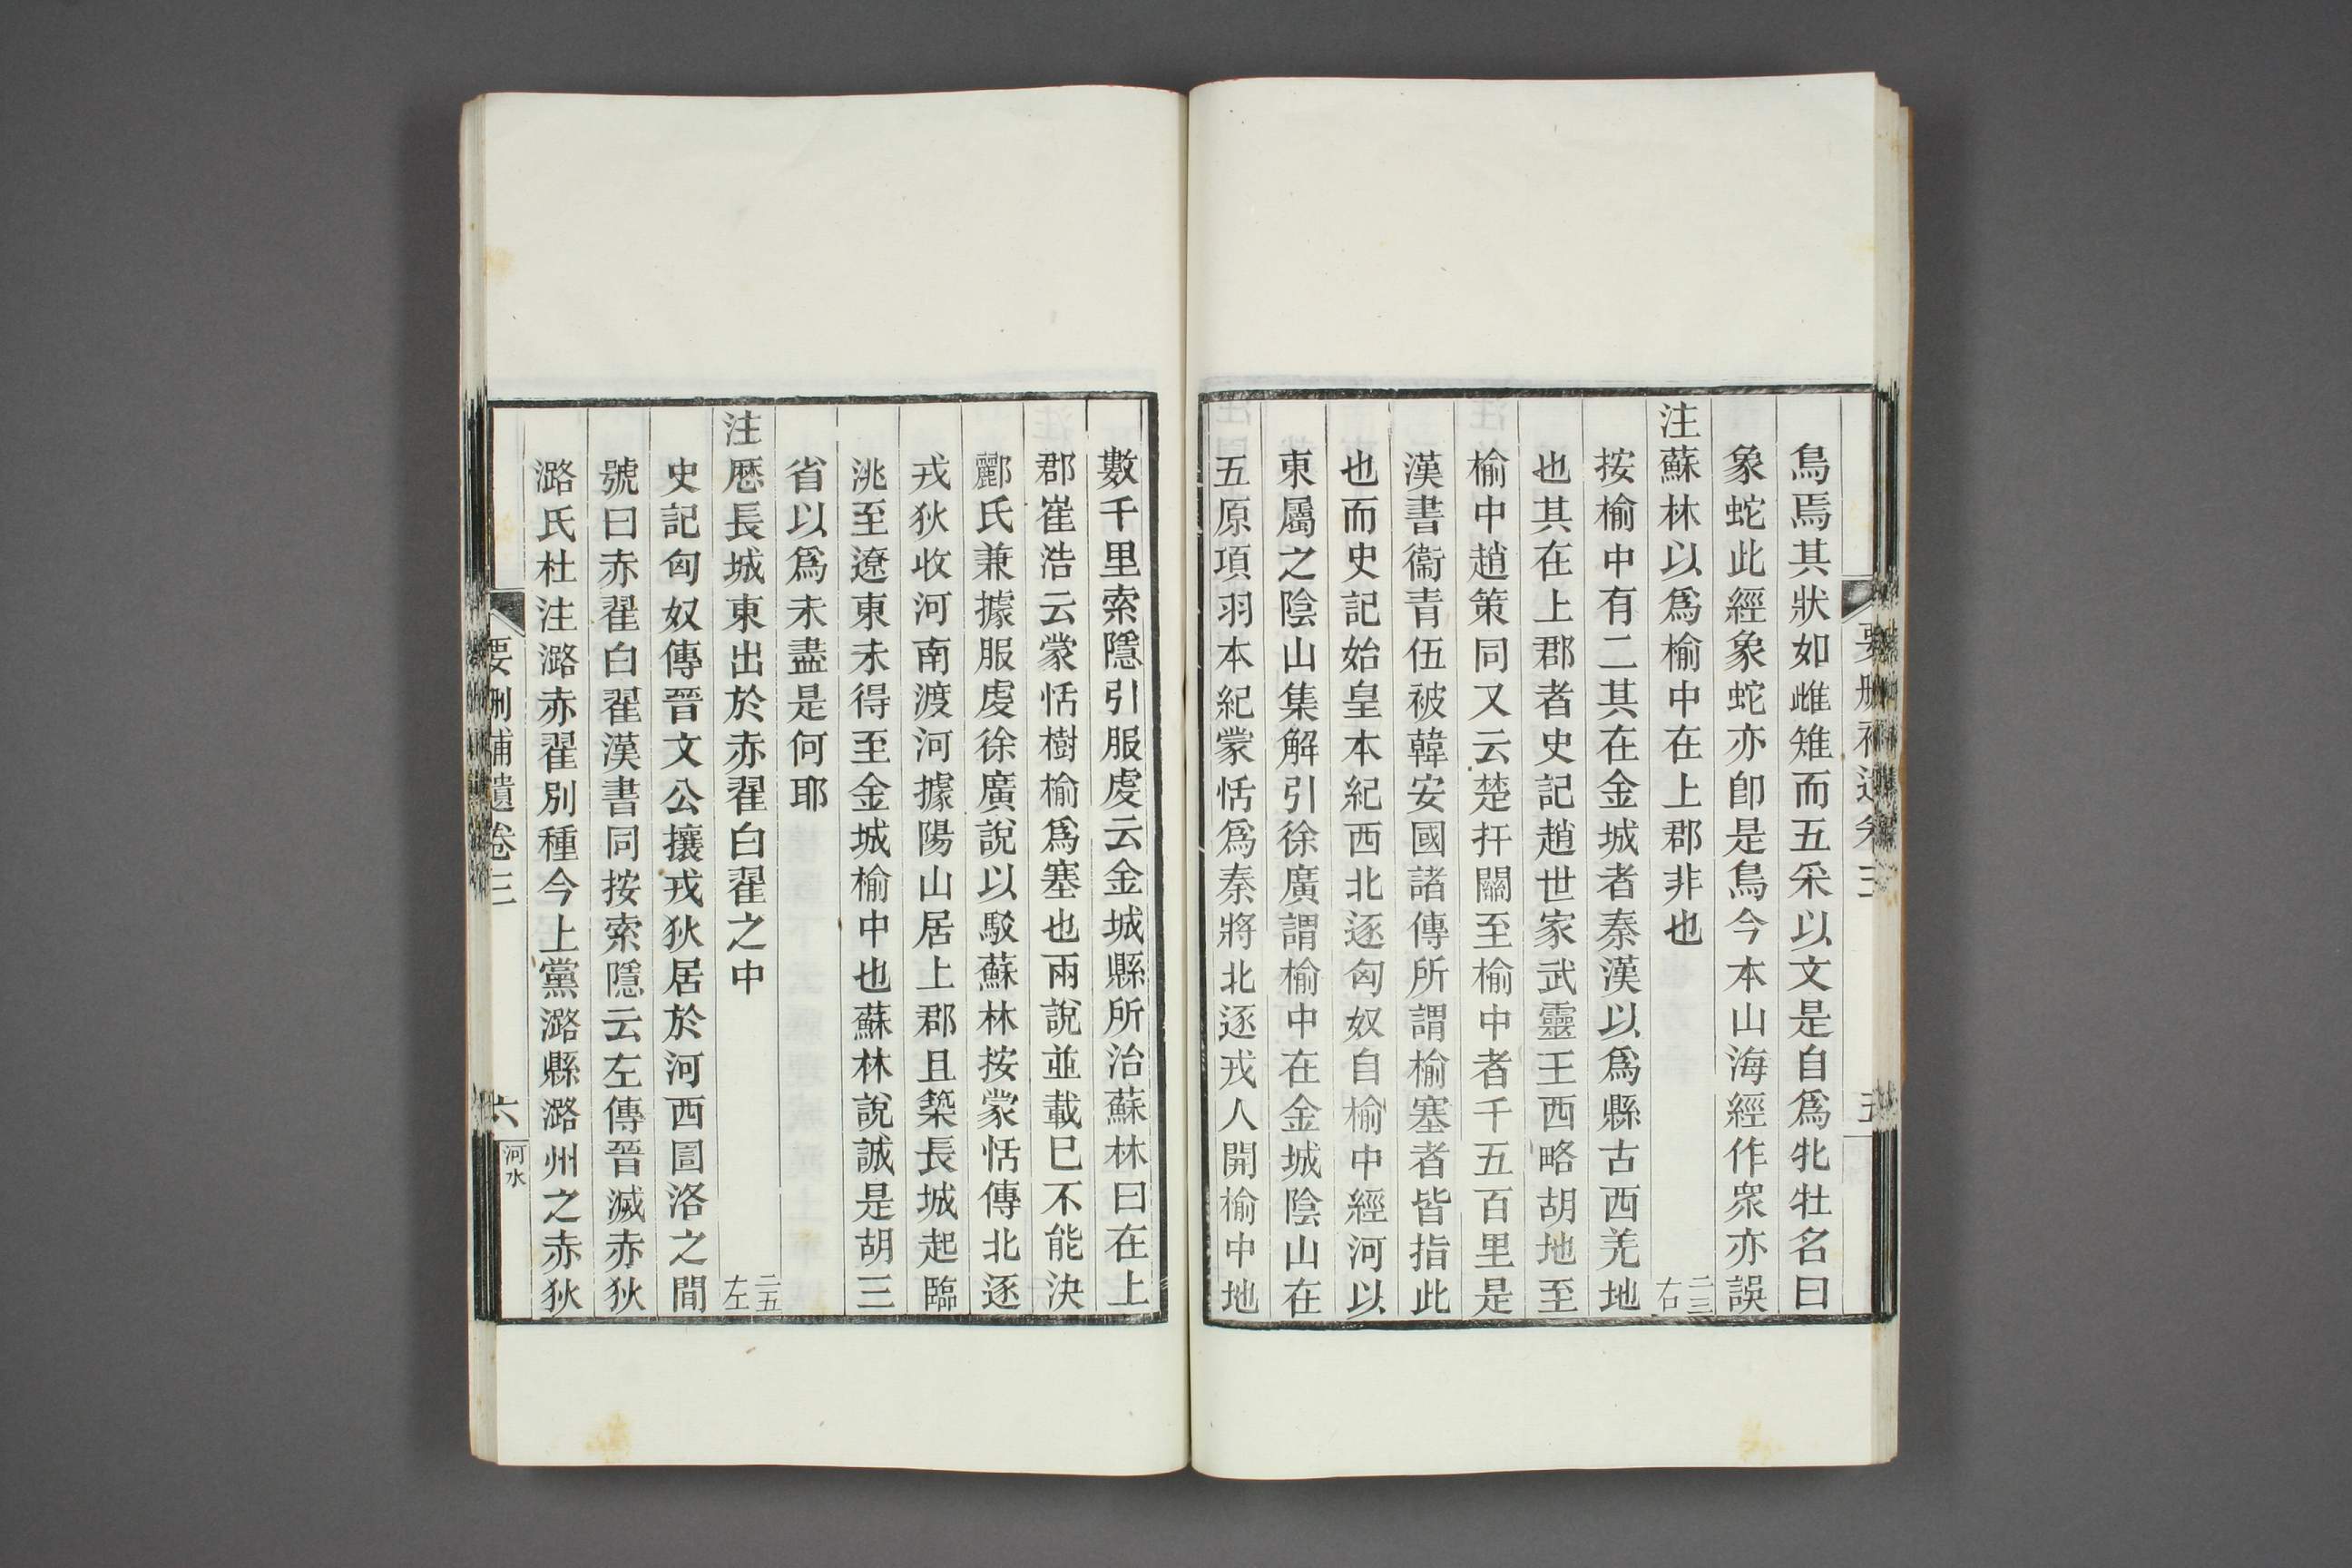 鳥焉其狀如雌雉而五采以文是自爲牝牡名曰
象蛇此經象蛇亦卽是鳥今本山海經作衆亦誤
注蘇林以爲榆中在上郡非也 二三右
按榆中有二其在金城者秦漢以爲縣古西羌地
也其在上郡者史記趙世家武靈王西略胡地至
榆中趙策同又云楚扞關至榆中者千五百里是
漢書衞青伍被韓安國諸傳所謂榆塞者皆指此
也而史記始皇本紀西北逐匈奴自榆中經河以
東屬之陰山集解引徐廣謂榆中在金城陰山在
五原項羽本紀蒙恬爲秦將北逐戎人開榆中地
數千里索隱引服虔云金城縣所治蘇林曰在上
郡崔浩云蒙恬樹榆爲塞也兩說並載巳不能決
酈氏兼據服虔徐廣說以駁蘇林按蒙恬傳北逐
戎狄收河南渡河據陽山居上郡且築長城起臨
洮至遼東未得至金城榆中也蘇林說誠是胡三
省以爲未盡是何耶
注歷長城東出於赤翟白翟之中 二五左
史記匈奴傳晉文公攘戎狄居於河西圁洛之間
號曰赤翟白翟漢書同按索隱云左傳晉滅赤狄
潞氏杜注潞赤翟別種今上黨潞縣潞州之赤狄
要刪補遺卷三
六
河水